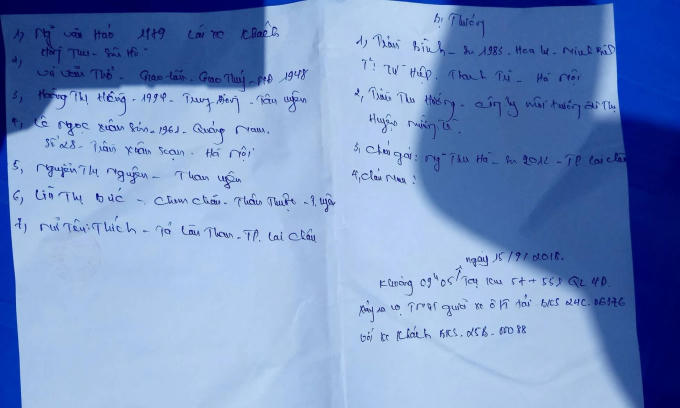 1, Ng~ văn Hảo 1979 Lái xe khách
2,
Vũ văn Thở - Giao tân - Giao Thuỷ - NĐ 1948
3, Hoàng Thị Hồng - 1994 - Trung Đồng - Tân uyên
4, Lê Ngọc Xuân Sơn - 1961 - Quảng Nam.
Số 28 - Trần Xuân Soạn - Hà Nội
5, Nguyễn Thị Nguyên - Than uyên
6, Thị Đức - Thân Thuộc - T. uyên
7, nữ Tên: Thích - Tả Làn Than - TP. Lai Châu
bị Thương
1, Trần Bình - Sn 1983 - Hoa lư - Ninh Bình
Tứ Hiệp, Thanh Trì - Hà Nội
2, Trần Thu Hương - công ty môi trường đô Thị
Huyện mường Tè.
3, Cháu gái: Ng~ Thu Hà - Sn 2012 - TP lai châu
4, cháu Nam:
ngày 15/9/2018.
Khoảng 09h05' Tại km 57 + 553 QL 4D.
xảy ra vụ TNGT người xe ô tô tải BKS 24C. 06976
với xe khách BKS. 25B - 00088